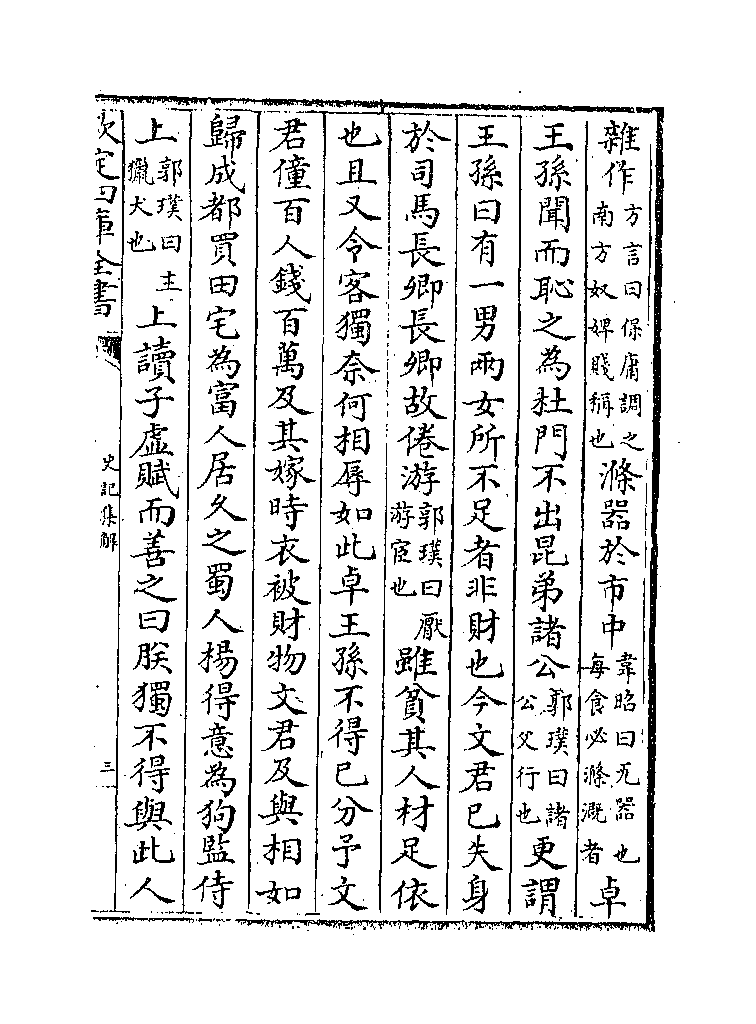 雜作方言曰保庸謂之南方奴婢賤稱也滌器於市中韋昭曰瓦器也每食必滌溉者卓
王孫聞而恥之為杜門不出昆弟諸公郭璞曰諸公父行也更謂
王孫曰有一男兩女所不足者非財也今文君已失身
於司馬長卿長卿故倦游郭璞曰厭游宦也雖貧其人材足依
也且又令客獨奈何相辱如此卓王孫不得已分予文
君僮百人錢百萬及其嫁時衣被財物文君及與相如
歸成都買田宅為富人居久之蜀人楊得意為狗監侍
上郭璞曰主獵犬也上讀子虛賦而善之曰朕獨不得與此人
欽定四庫全書
史記集解
三